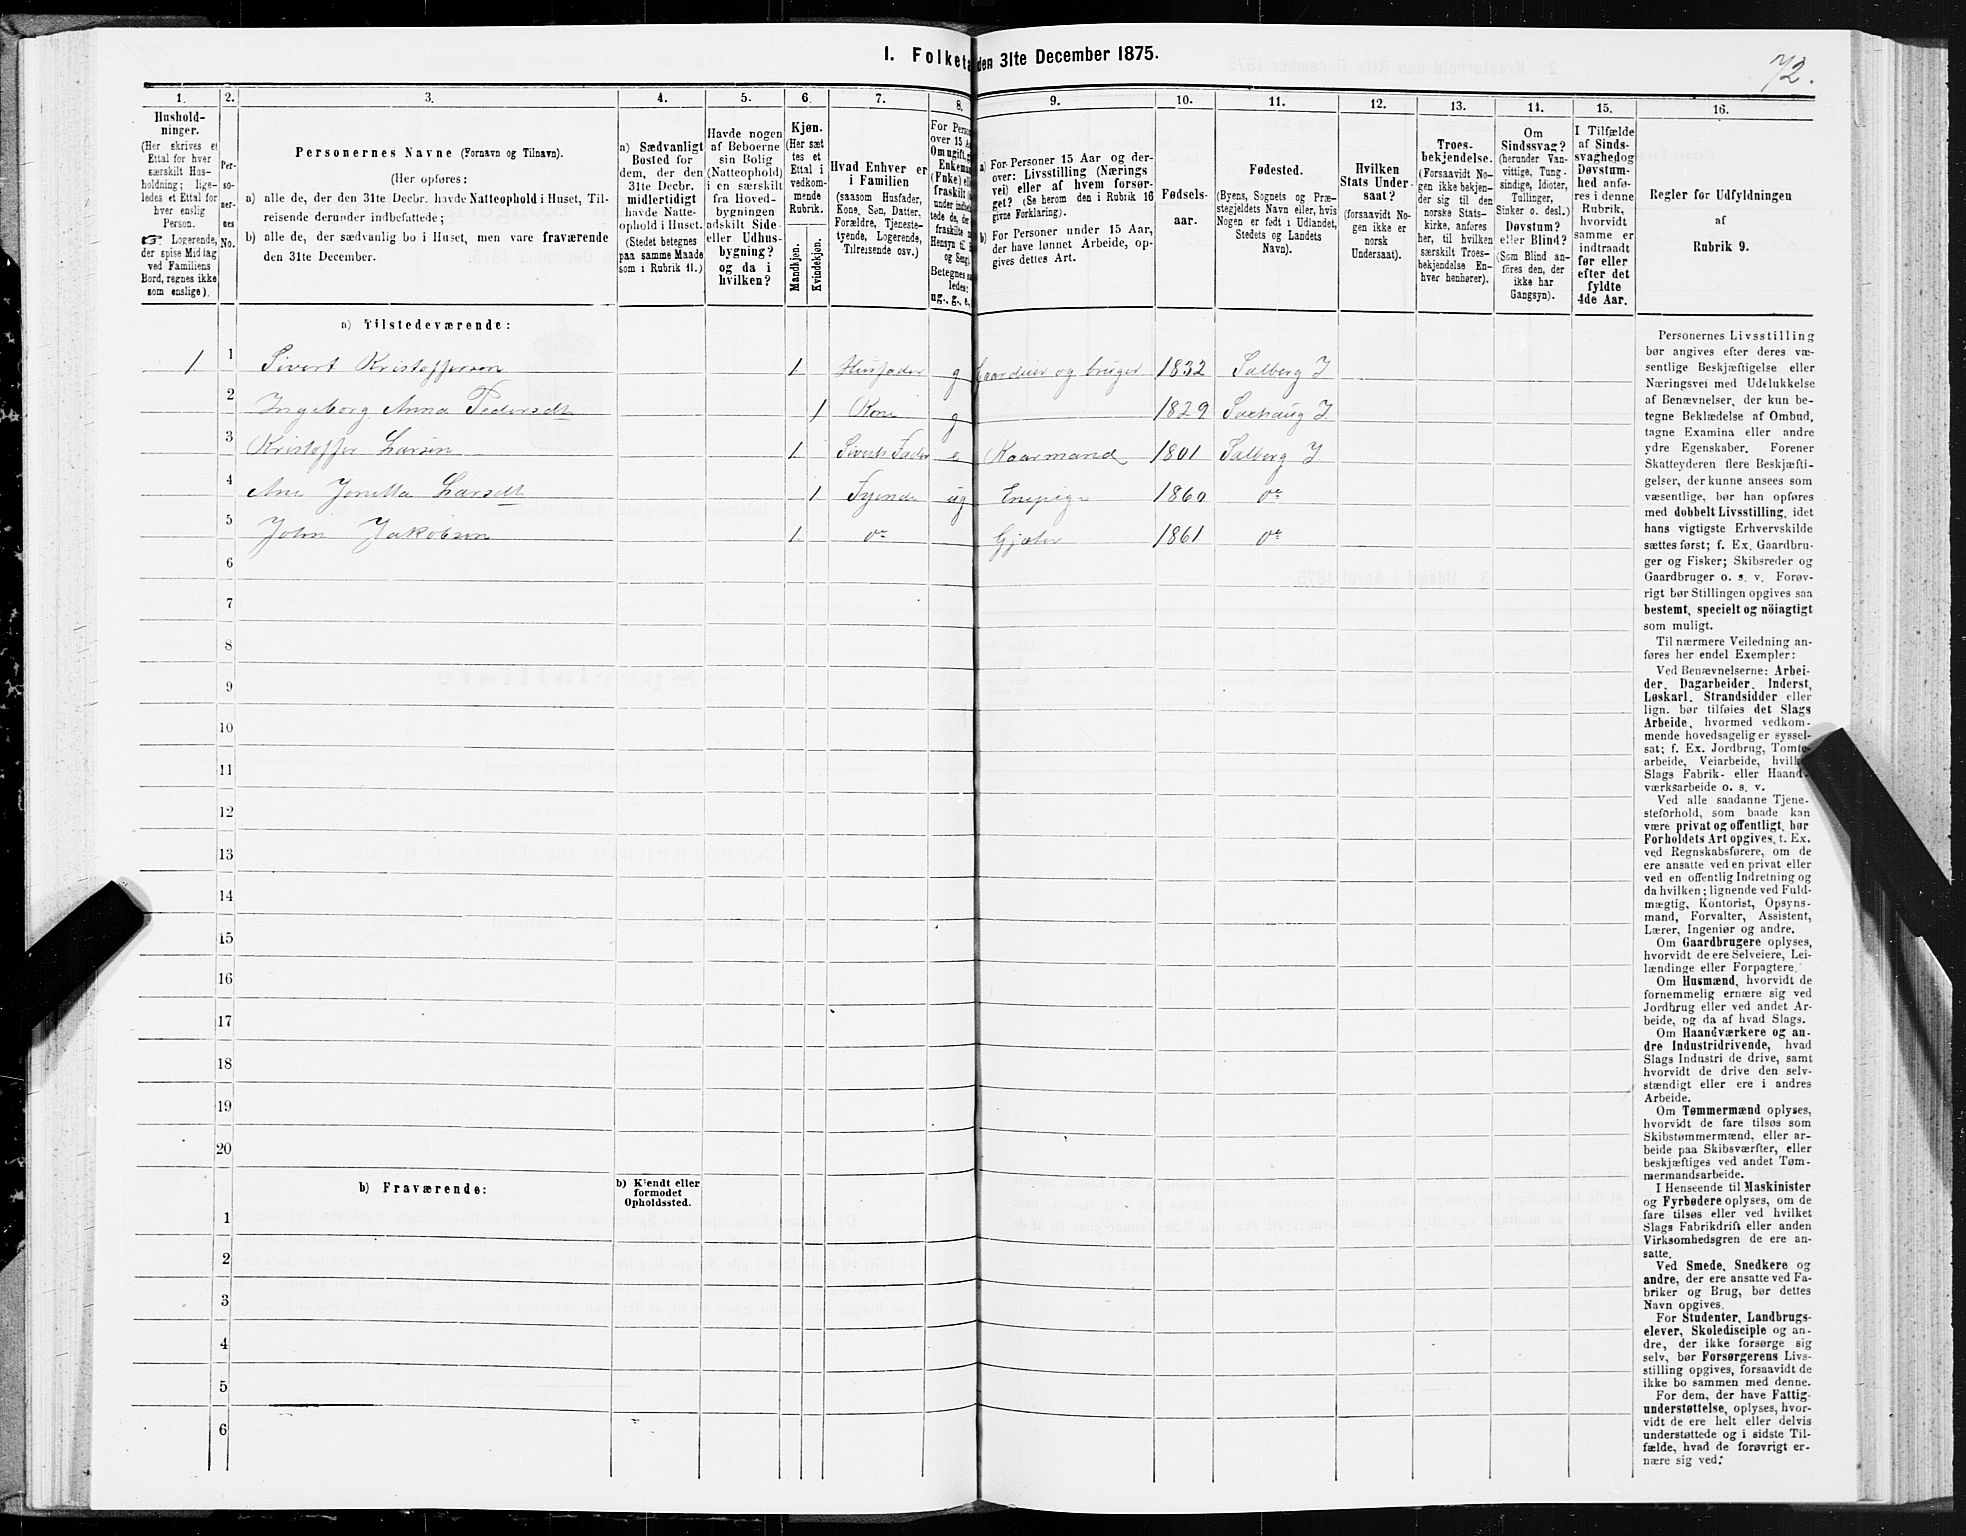 1. Folketæ den 31te December 1875.
72.
1. 2. 3. 4. 5. 6. 7. 8. 9. 10. 11. 12. 13. 14. 15. 16.
Hushold-
ninger.
(Her skrives et
Ettal for hver
særskilt Hus-
holdning; lige-
ledes et Ettal for
hver enslig
Person.
☞ Logerende,
der spise Middag
ved Familiens
Bord, regnes ikke
som enslige).
Per-
so-
ner-
nes
No.
Personernes Navne (Fornavn og Tilnavn).
(Her opføres:
a) alle de, der den 31te Decbr. havde Natteophold i Huset, Til-
reisende derunder indbefattede;
b) alle de, der sædvanlig bo i Huset, men vare fraværende
den 31te December.
a) Sædvanligt
Bosted for
dem, der den
31te Decbr.
midlertidigt
havde Natte-
ophold i Huset.
(Stedet betegnes
paa samme Maade
som i Rubrik 11.)
Havde nogen
af Beboerne
sin Bolig
(Natteophold)
i en særskilt
fra Hoved-
bygningen
adskilt Side-
eller Udhus-
bygning?
og da i
hvilken?
Kjøn.
(Her sæt
tes et
Ettal i
vedkom-
mende
Rubrik.
Mandkjøn.
Kvindekjøn.
Hvad Enhver er
i Familien
(saasom Husfader,
Kone, Søn, Datter,
Forældre, Tjeneste-
tyende, Logerende,
Tilreisende osv.).
For Perso
over 15 Aa
Om ugift, g
Enkeman
(Enke) el
fraskilt
under indb
tede de,
fraskilte
Hensyn til
og Seng.
Betegnes sa
ledes:
ug., g., e.,
a) For Personer 15 Aar og der-
over: Livsstilling (Nærings
vei) eller af hvem forsør-
get? (Se herom den i Rubrik 16
givne Forklaring).
b) For Personer under 15 Aar,
der have lønnet Arbeide, op-
gives dettes Art.
Fødsels-
aar.
Fødested.
(Byens, Sognets og Præ-
stegjeldets Navn eller, hvis
Nogen er født i Udlandet,
Stedets og Landets
Navn).
Hvilken
Stats Under-
saat?
(forsaavidt No-
gen ikke er
norsk
Undersaat).
Troes-
bekjendelse.
(Forsaavidt No-
gen ikke bekjen-
der sig til den
norske Stats-
kirke, anføres
her, til hvilken
særskilt Troes-
bekjendelse En-
hver henhører).
Om
Sindssvag?
(herunder Van-
vittige, Tung-
sindige, Idioter,
Tullinger,
Sinker o. desl.)
Døvstum?
eller Blind?
(Som Blind an-
føres den, der
ikke har
Gangsyn).
I Tilfælde
af Sinds-
svaghed og
Døvstum-
hed anfø-
res i denne
Rubrik,
hvorvidt
samme er
indtraadt
før eller
efter det
fyldte
4de Aar.
Regler for Udfyldningen
af
Rubrik 9.
a) Tilstedeværende:
1 1 Sivert Kristoffersen 1 Husfader g Gaardeier og bruger 1832 Salberg I
2 Ingeborg Anna Pedersdt 1 Kone g 1829 Saxhaug I
3 Kristoffer Larsen 1 Siverts Fader e Kaarmand 1801 Salberg I
4 Ane Jonetta Larsdt 1 Tyende ug 1860 do
5 John Jakobsen 1 do Gjæter 1861 do
6
7
8
9
10
11
12
13
14
15
16
17
18
19
20
b) Fraværende:
b) Kjendt eller
formodet
Opholdssted.
1
2
3
4
5
6
Personernes Livsstilling
bør angives efter deres væ-
sentlige Beskjæftigelse eller
Næringsvei med Udelukkelse
af Benævnelser, der kun be-
tegne Beklædelse af Ombud,
tagne Examina eller andre
ydre Egenskaber. Forener
Skatteyderen flere Beskjæfti-
gelser, der kunne ansees som
væsentlige, bør han opføres
med dobbelt Livsstilling, idet
hans vigtigste Erhvervskilde
sættes først; f. Ex. Gaardbru-
ger og Fisker; Skibsreder og
Gaardbruger o. s. v. Forøv-
rigt bør Stillingen opgives saa
bestemt, specielt og nöiagtigt
som muligt.
Til nærmere Veiledning an-
føres her endel Exempler:
Ved Benævnelserne: Arbei-
der, Dagarbeider, Inderst,
Løskarl, Strandsidder eller
lign. bør tilføies det Slags
Arbeide, hvormed vedkom-
mende hovedsagelig er syssel-
sat; f. Ex. Jordbrug, Tomte-
arbeide, Veiarbeide, hvilk
Slags Fabrik- eller Haand-
værksarbeide o. s. v.
Ved alle saadanne Tjene-
steforhold, som baade kan
være privat og offentligt, bør
Forholdets Art opgives, t. Ex.
ved Regnskabsførere, om de
ere ansatte ved en privat eller
ved en offentlig Indretning og
da hvilken; lignende ved Fuld-
mægtig, Kontorist, Opsyns-
mand, Forvalter, Assistent,
Lærer, Ingeniør og andre.
Om Gaardbrugere oplyses,
hvorvidt de ere Selveiere, Lei-
lændinge eller Forpagtere.
Om Husmænd, hvorvidt de
fornemmelig ernære sig ved
Jordbrug eller ved andet Ar-
beide, og da af hvad Slags.
Om Haandværkere og an-
dre Industridrivende, hvad
Slags Industri de drive, samt
hvorvidt de drive den selv-
stændigt eller ere i andres
Arbeide.
Om Tømmermænd oplyses,
hvorvidt de fare tilsøs som
Skibstømmermænd, eller ar-
beide paa Skibsværfter, eller
beskjæftiges ved andet Tøm-
mermandsarbeide.
I Henseende til Maskinister
og Fyrbødere oplyses, om de
fare tilsøs eller ved hvilket
Slags Fabrikdrift eller anden
Virksomhedsgren de ere an-
satte.
Ved Smede, Snedkere og
andre, der ere ansatte ved Fa-
briker og Brug, bør dettes
Navn opgives.
For Studenter, Landbrugs-
elever, Skoledisciple og an-
dre, der ikke forsørge sig
selv, bør Forsørgerens Livs-
stilling opgives, forsaavidt de
ikke bo sammen med denne.
For dem, der have Fattig-
understøttelse, oplyses, hvor-
vidt de ere helt eller delvis
understøttede og i sidste Til-
fælde, hvad de forøvrigt er-
nære sig ved.